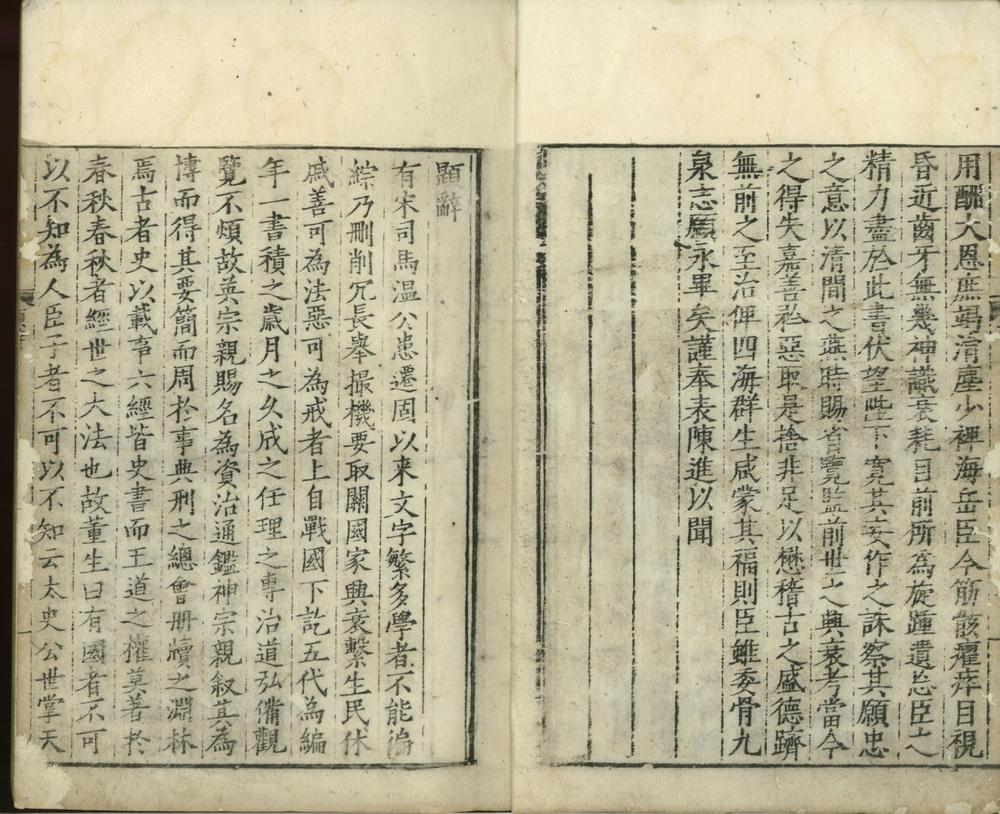 用酬大恩庶竭涓塵少裨海岳臣今筋骸癯瘁目視
昏近齒牙無幾神識衰耗目前所為旋踵遺忘臣之
精力盡於此書伏望陛下寬其妄作之誅察其願忠
之意以清閒之燕時賜省覽監前世之興衰考當今
之得失嘉善矜惡取是捨非足以懋稽古之盛德躋
無前之至治俾四海群生咸蒙其福則臣雖委骨九
泉志願永畢矣謹奉表陳進以聞
題辭
有宋司馬温公患遷固以来文字繁多學者不能徧
綜乃刪削冗長舉撮機要取關國家興衰繫生民休
戚善可為法惡可為戒者上自戰國下訖五代為編
年一書積之歲月之久成之任理之專治道弘備觀
覽不煩故英宗親賜名為資治通鑑神宗親叙其為
博而得其要簡而周於事典刑之總會冊牘之淵林
焉古者史以載事六經皆史書而王道之權莫著於
春秋春秋者經世之大法也故董生曰有國者不可
以不知為人臣子者不可以不知云太史公世掌天